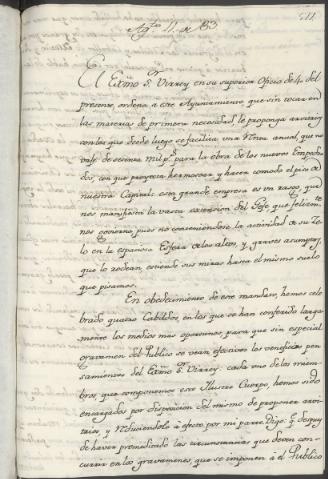 Agto 11 de 83
El Exmo Sr. Virrey en su superior Oficio de 4 del
presente, ordena a este Ayuntamiento, que sin tocar en
las materias de primera necesidad, le proponga arvitrios
con los que desde luego se facilite una Renta anual, que no
vaje de setenta mil ps. para la obra de los nuevos Empedra
dos, con que proyecta hermosear, y hacer comodo el piso de
nuestra Capital: esta grande empresa es un rasgo que
nos manifiesta la vasta extension del Gefe, que felizmte
nos govierna, pues no conteniendose la actividad de su Ze
lo en la espaciosa Esfera de los altos, y graves asumptos,
que lo rodean, extiende sus miras hasta el mismo suelo
que pisamos.
En obedecimiento de este mandato, hemos cele
brado quatro Cabildos, en los que se han conferido larga
mente los medios mas oportunos, para que sin especial
gravamen del Publico se vean efectivos los beneficos pen
samientos del Exmo Sr. Virrey: cada uno de los miem
bros, que componemos este Ilustre Cuerpo, hemos sido
encargados por disposicion del mismo de proponer arvi
trios, y reduciendolo à efecto por mi parte Digo: que despues
de haver premeditado las circunstancias que deven con
currir en los gravamenes, que se imponen à el Publico